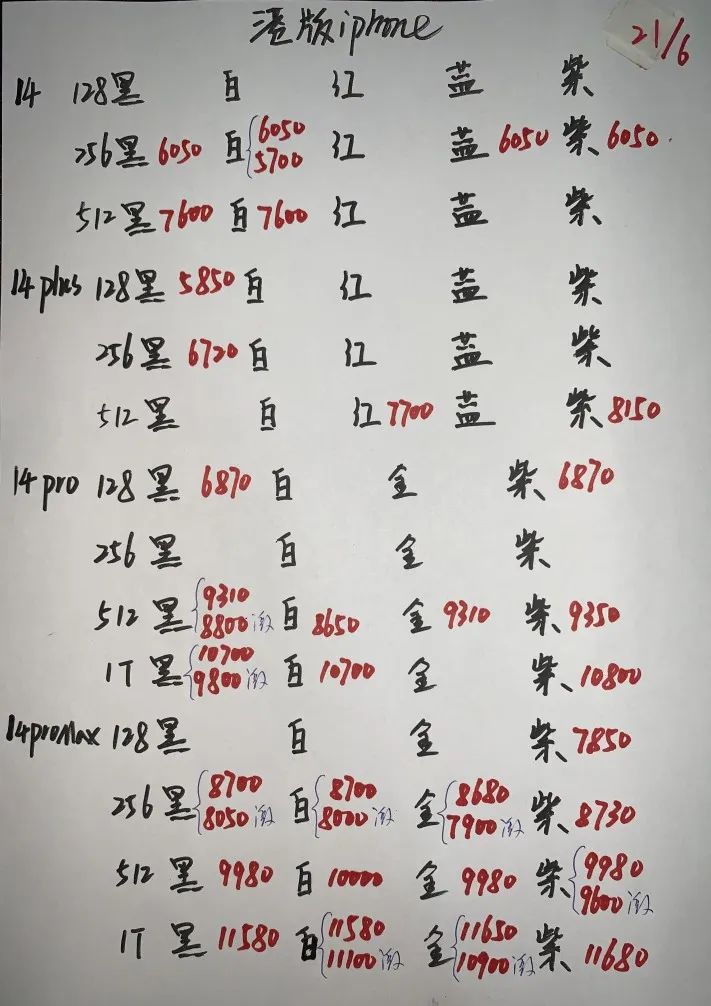 港版iphone 21/6
14 128黑 白 红 蓝 紫
256黑 6050 白 6050 5700 红 蓝 6050 紫 6050
512黑 7600 白 7600 红 蓝 紫
14 plus 128黑 5850 白 红 蓝 紫
256黑 6720 白 红 蓝 紫
512黑 白 红 7700 蓝 紫 8150
14 pro 128黑 6870 白 金 紫 6870
256黑 白 金 紫
512黑 9310 8800激 白 8650 金 9310 紫 9350
1T黑 10700 9800激 白 10700 金 紫 10800
14proMax 128黑 白 金 紫 7850
256黑 8700 8050激 白 8700 8000激 金 8680 7900激 紫 8730
512黑 9980 白 10000 金 9980 紫 9980 9600激
1T黑 11580 白 11580 11100激 金 11650 10900激 紫 11680